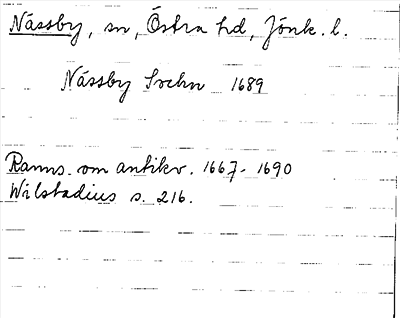 Nässby, sn, Östra hd, Jönk. l.
Nässby Sochn 1689
Ranns. om antikv. 1667-1690
Wilstadius s. 216.